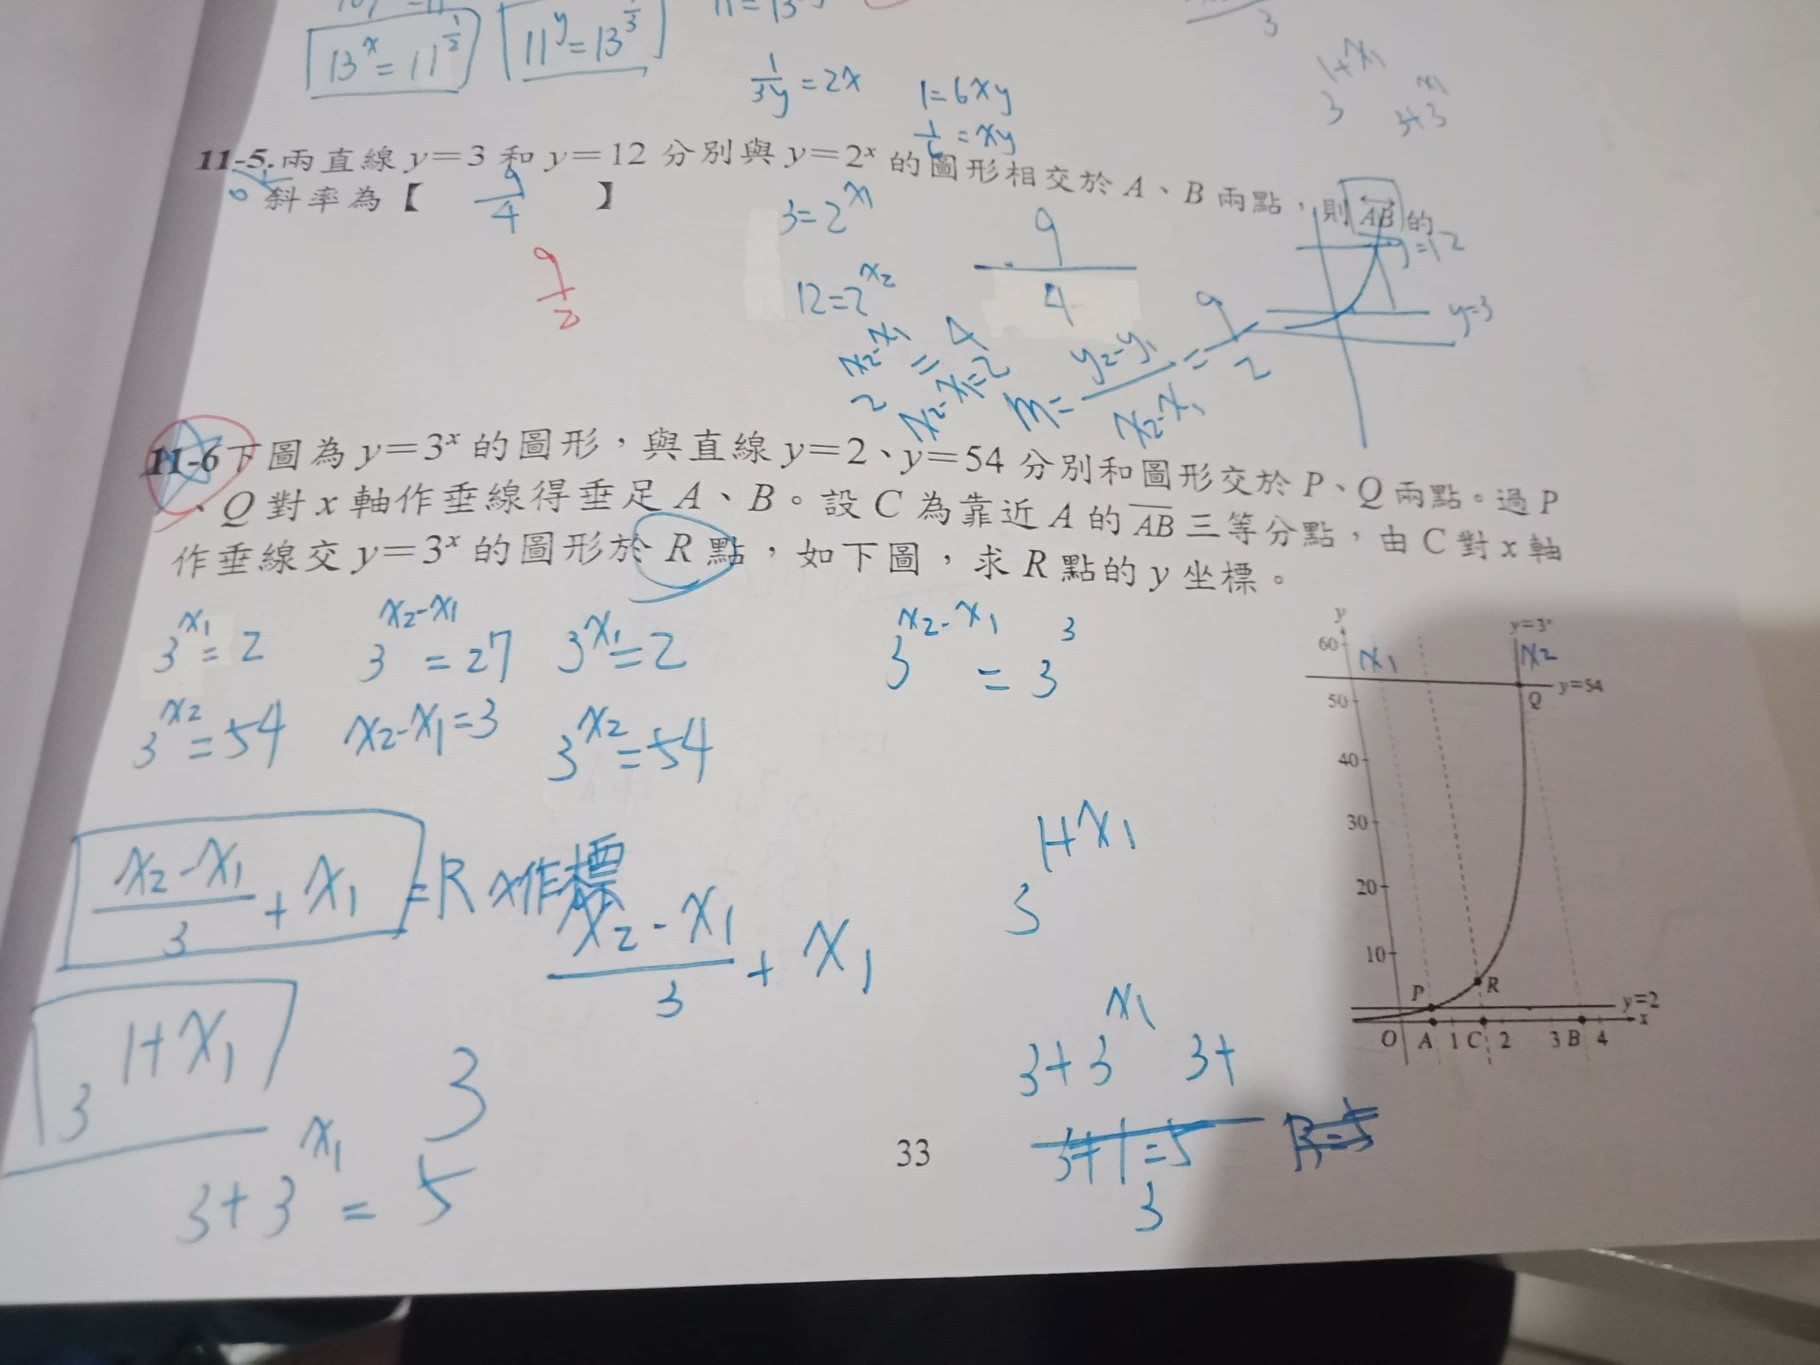 13^x = 11^{1/2}
11^y = 13^{1/3}
1/3y = 2x
1 = 6xy
1/6 = xy
3
1+x1
3
x1
3+3
11-5.兩直線 y=3 和 y=12 分別與 y=2^x 的圖形相交於 A、B 兩點，則 AB 的
斜率為【 9/4 】
9/2
3=2^{x1}
12=2^{x2}
2^{x2-x1} = 4
x2-x1=2
9/4
m= (y2-y1)/(x2-x1) = 9/2
y=12
y=3
11-6下圖為 y=3^x 的圖形，與直線 y=2、y=54 分別和圖形交於 P、Q 兩點。過 P
、Q 對 x 軸作垂線得垂足 A、B。設 C 為靠近 A 的 AB 三等分點，由 C 對 x 軸
作垂線交 y=3^x 的圖形於 R 點，如下圖，求 R 點的 y 坐標。
3^{x1} = 2
3^{x2-x1} = 27
3^{x1} = 2
3^{x2-x1} = 3^3
3^{x2} = 54
x2-x1=3
3^{x2} = 54
(x2-x1)/3 + x1 = R x作標
(x2-x1)/3 + x1
3^{1+x1}
3^{1+x1}
3+3^{x1} 3+
3
3+3^{x1} = 5
3
y
60
x1
y=3^x
x2
y=54
Q
50
40
30
20
10
P
R
y=2
x
O A 1 C 2 3 B 4
33